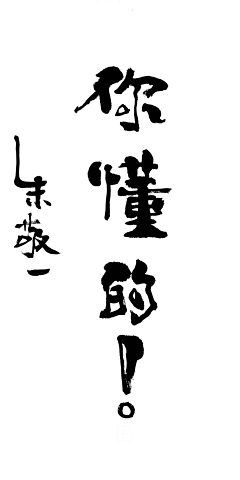 你懂的！
朱敬一